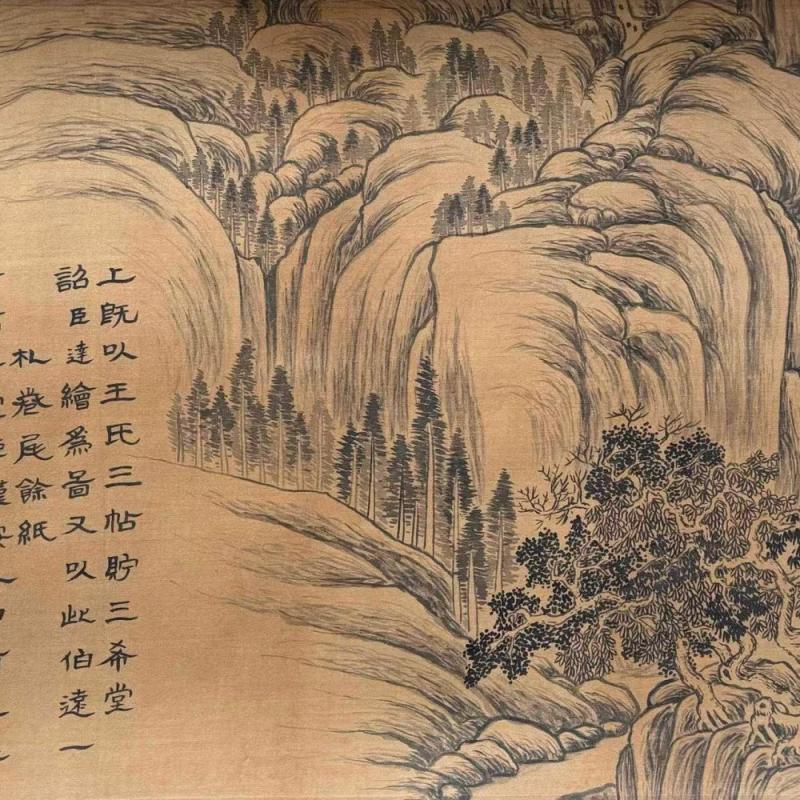 上既以王氏三帖貯三希堂
詔臣達繪為啚又以此伯遠一
札卷尾餘紙